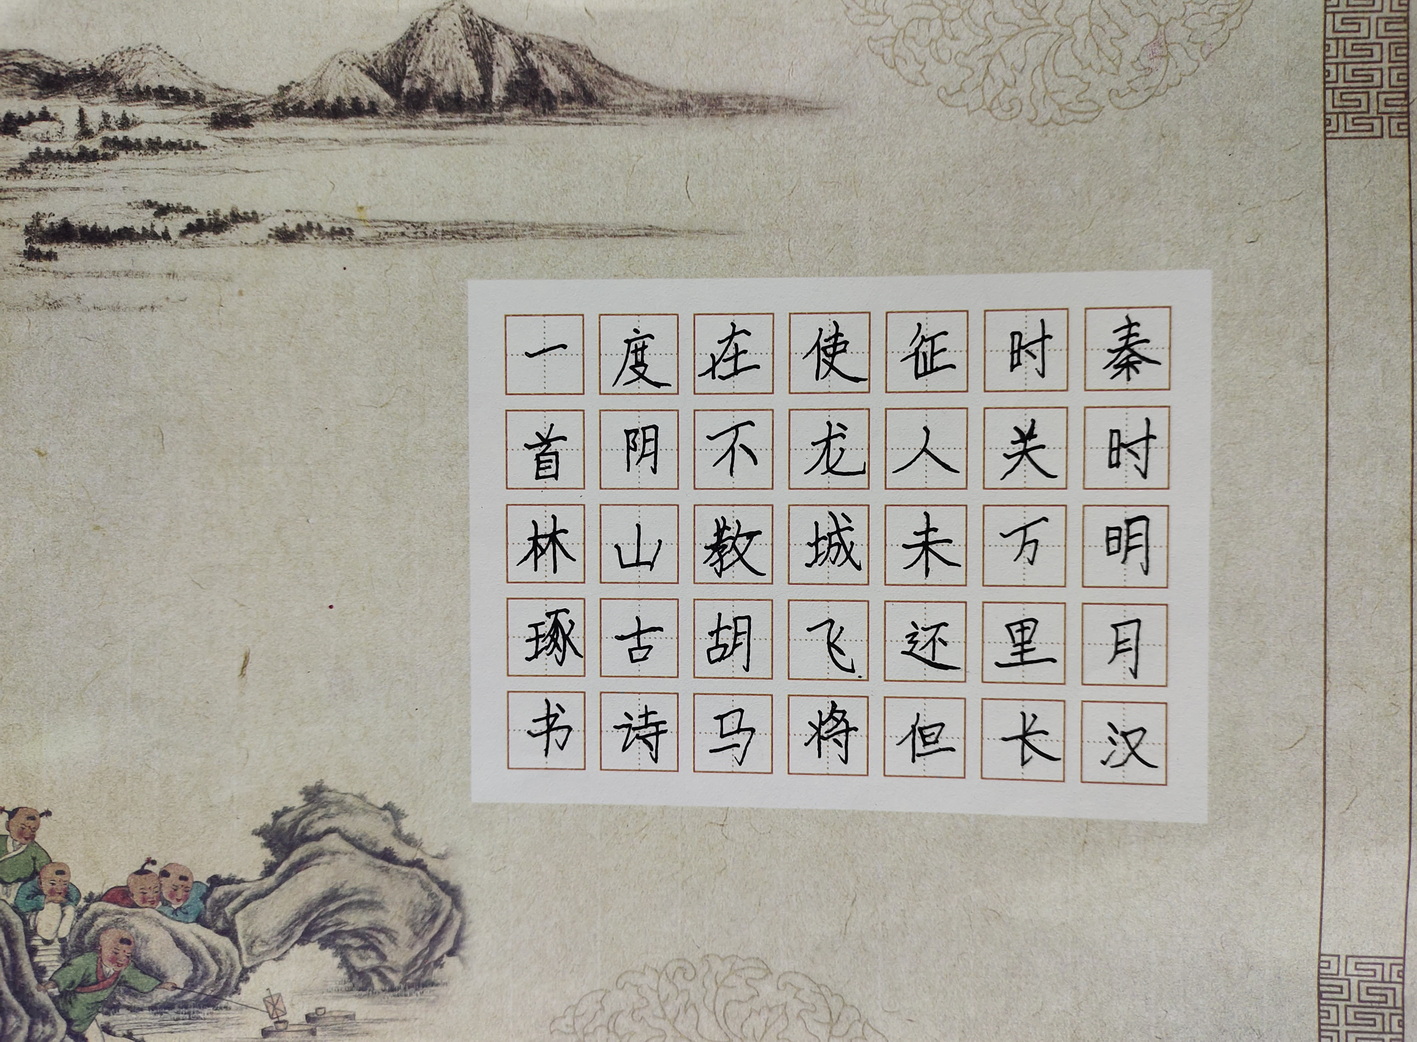 秦时明月汉
时关万里长
征人未还但
使龙城飞将
在不教胡马
度阴山古诗
一首林琢书